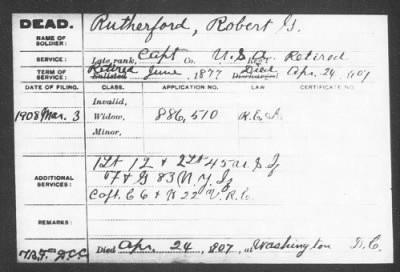 DEAD.
NAME OF SOLDIER: Rutherford, Robert G.
SERVICE: Late rank, Capt Co. U.S.A. Reg't Retired
TERM OF SERVICE: Enlisted Retired June, 1877 Discharged Died Apr. 24, 907
DATE OF FILING. CLASS. APPLICATION NO. LAW. CERTIFICATE NO.
Invalid,
1908 Mar. 3 Widow, 886,510
Minor,
ADDITIONAL SERVICES: 1 Lt 12 & 2 Lt 45 U.S. If
F & G 83 N.Y. If
Capt. C 6 & H 22 V.R.C.
REMARKS:
Died Apr. 24, 907, at Washington D.C.